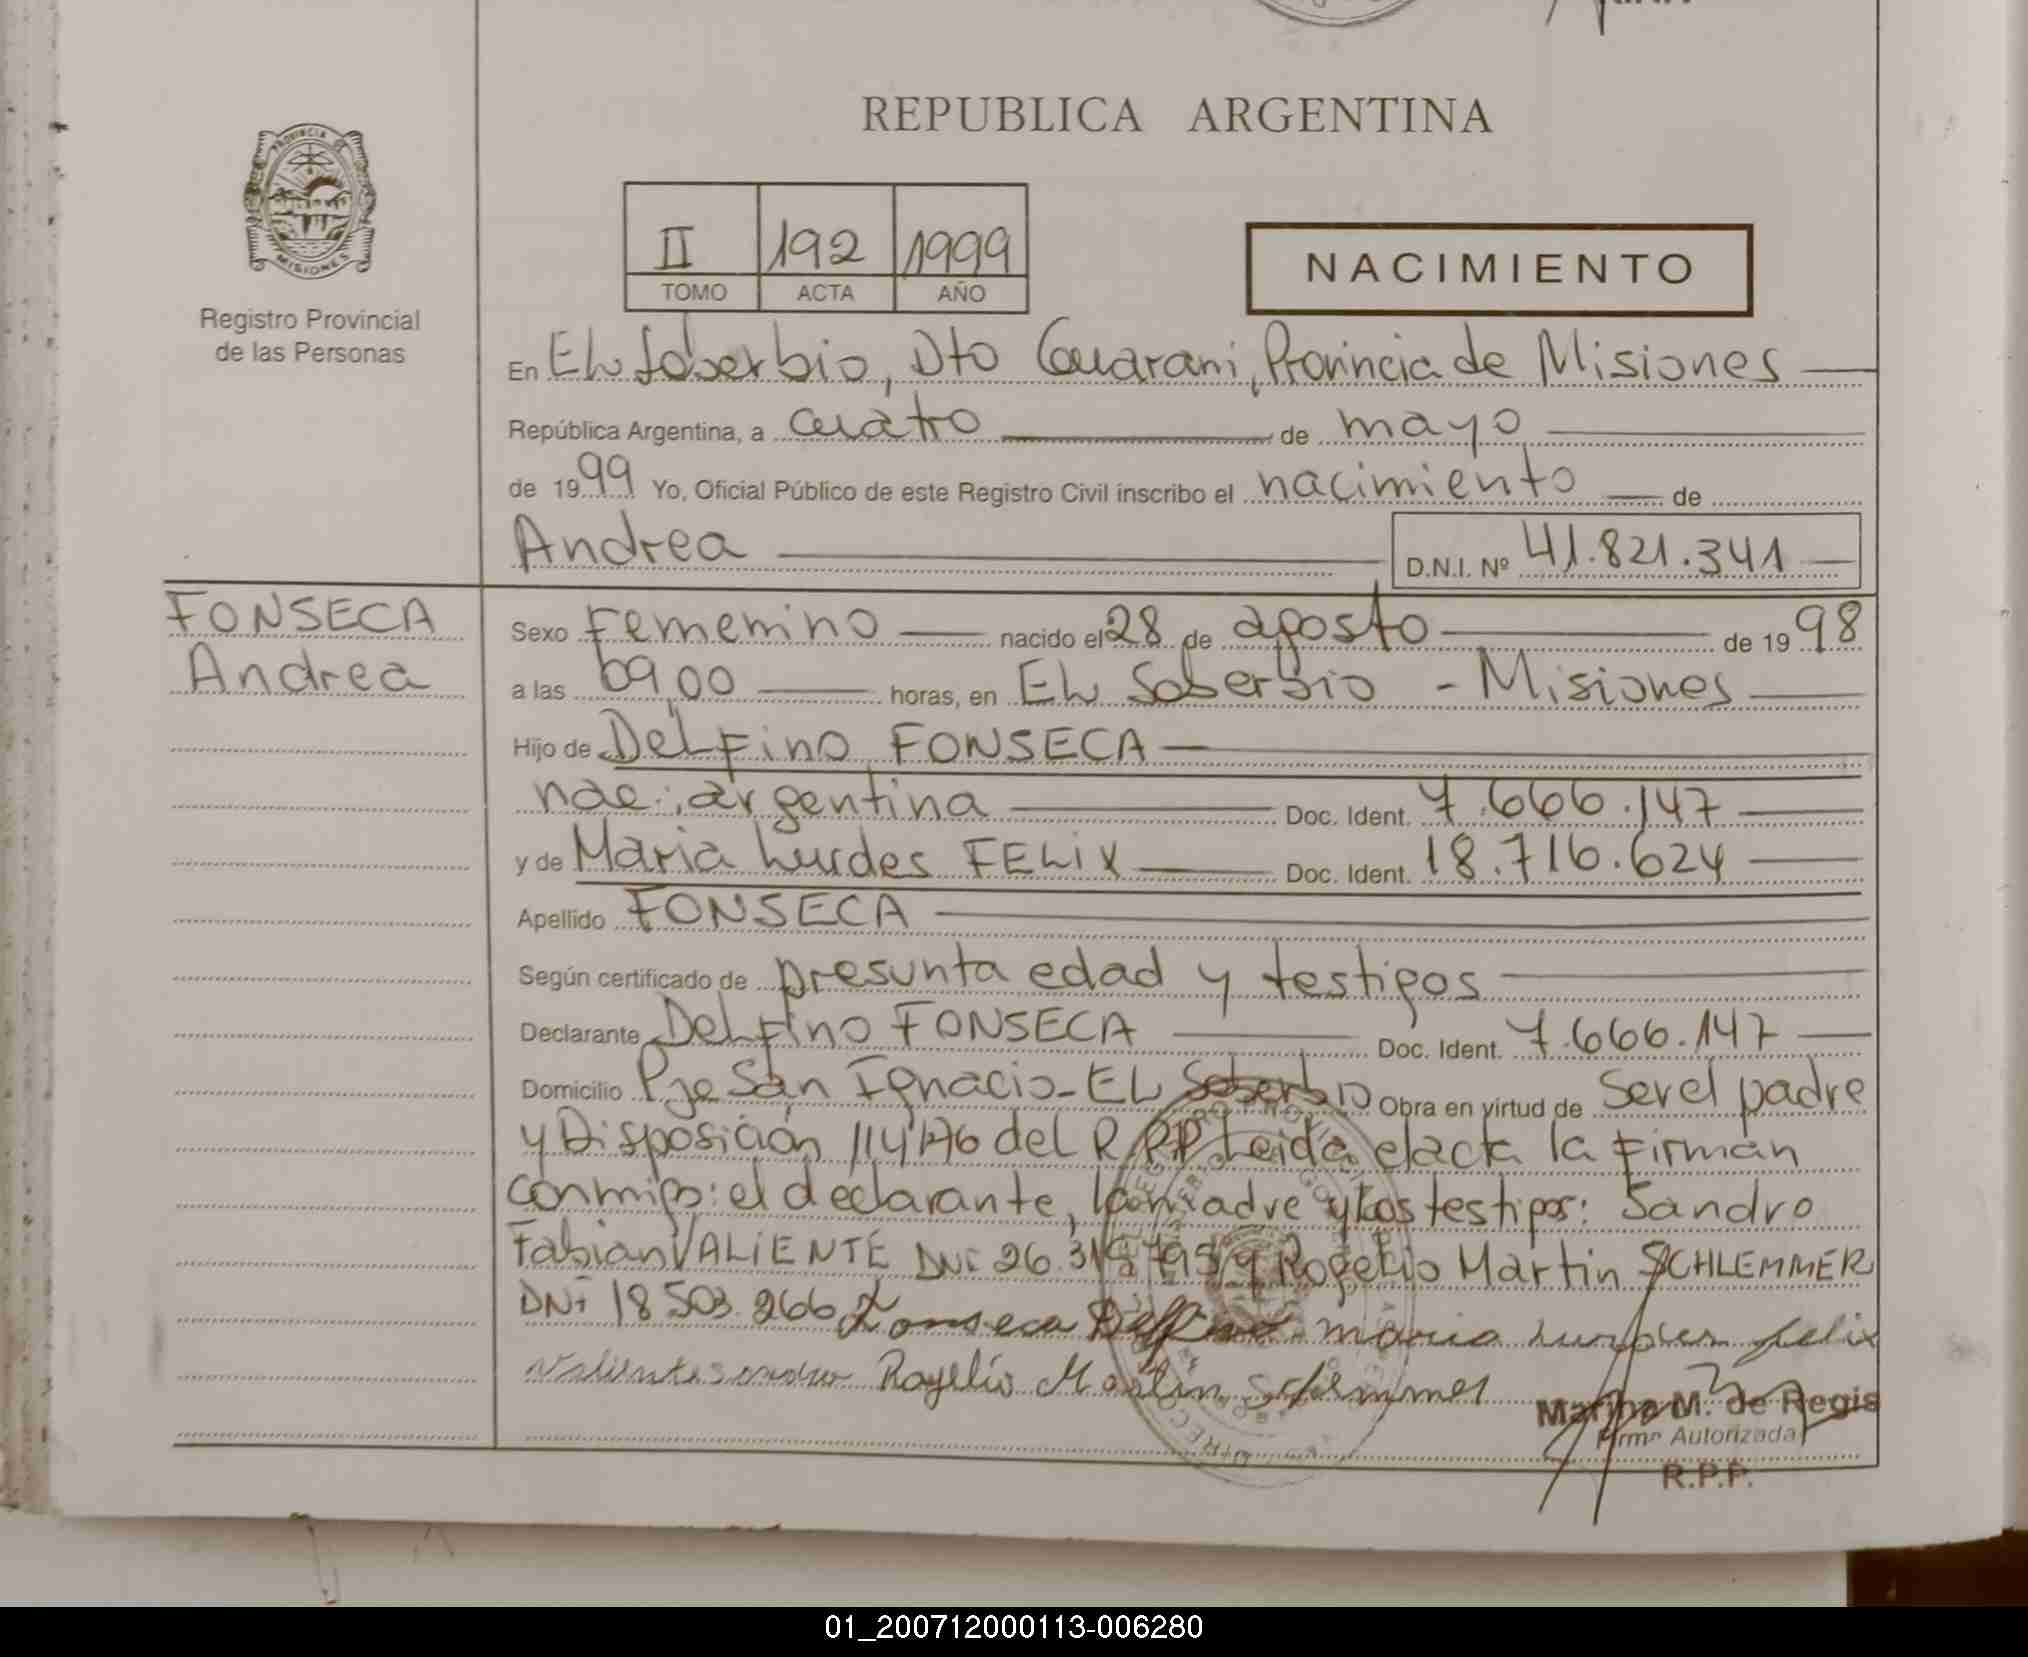 REPUBLICA ARGENTINA
PROVINCIA
MISIONES
Registro Provincial
de las Personas
II 192 1999
TOMO ACTA AÑO
NACIMIENTO
En EL Soberbio, Dto Guarani, Provincia de Misiones
República Argentina, a cuatro de mayo
de 1999 Yo, Oficial Público de este Registro Civil inscribo el nacimiento de
Andrea D.N.I. Nº 41.821.341
FONSECA
Andrea
Sexo Femenino nacido el 28 de agosto de 1998
a las 09,00 horas, en EL Soberbio - Misiones
Hijo de DELFino FONSECA
nac: argentina Doc. Ident. 7.666.147
y de Maria Lurdes FELiX Doc. Ident. 18.716.624
Apellido FONSECA
Según certificado de presunta edad y testigos
Declarante DELFino FONSECA Doc. Ident. 7.666.147
Domicilio Pje San Ignacio-EL Soberbio Obra en virtud de Ser el padre
y Disposición 114/76 del R.P.P. Leida el acta la firman
conmigo: el declarante, la madre y los testigos: Sandro
Fabian VALiENTE DNi 26. Rogelio Martin SCHLEMMER
DNi 18 503.266 Fonseca Delfino maria lurdes felix
Valiente sandro Rogelio Martin Schlemmer
Marina M. de Regis
Firma Autorizada
R.P.P.
01_200712000113-006280